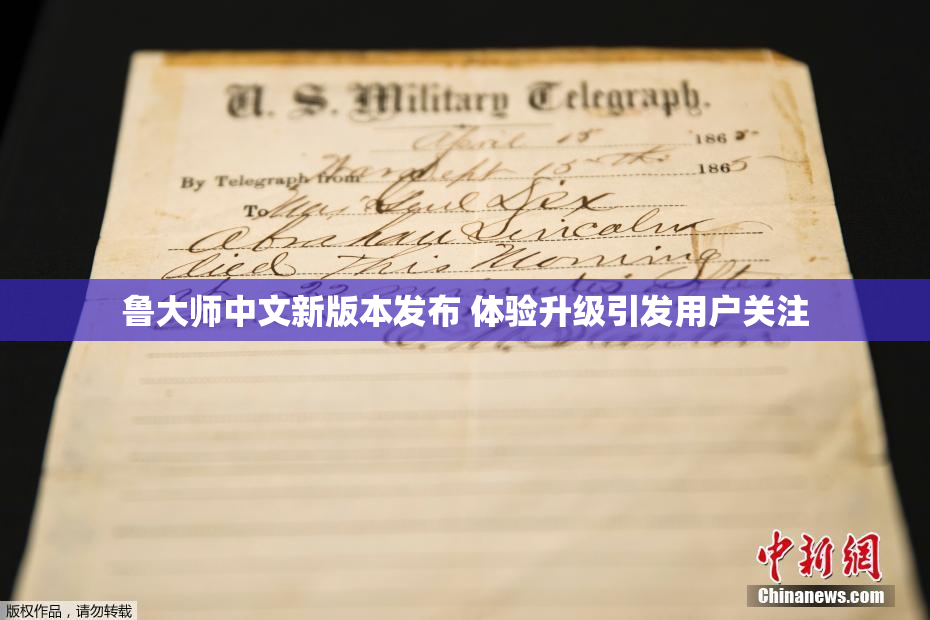 U. S. Military Telegraph.
April 15 1865
By Telegraph from War Dept 15th 1865
To Maj Genl Dix
Abraham Lincoln
died This Morning
at 22 minutes after
鲁大师中文新版本发布 体验升级引发用户关注
E. M. Stanton
中新網
Chinanews.com
版权作品，请勿转载